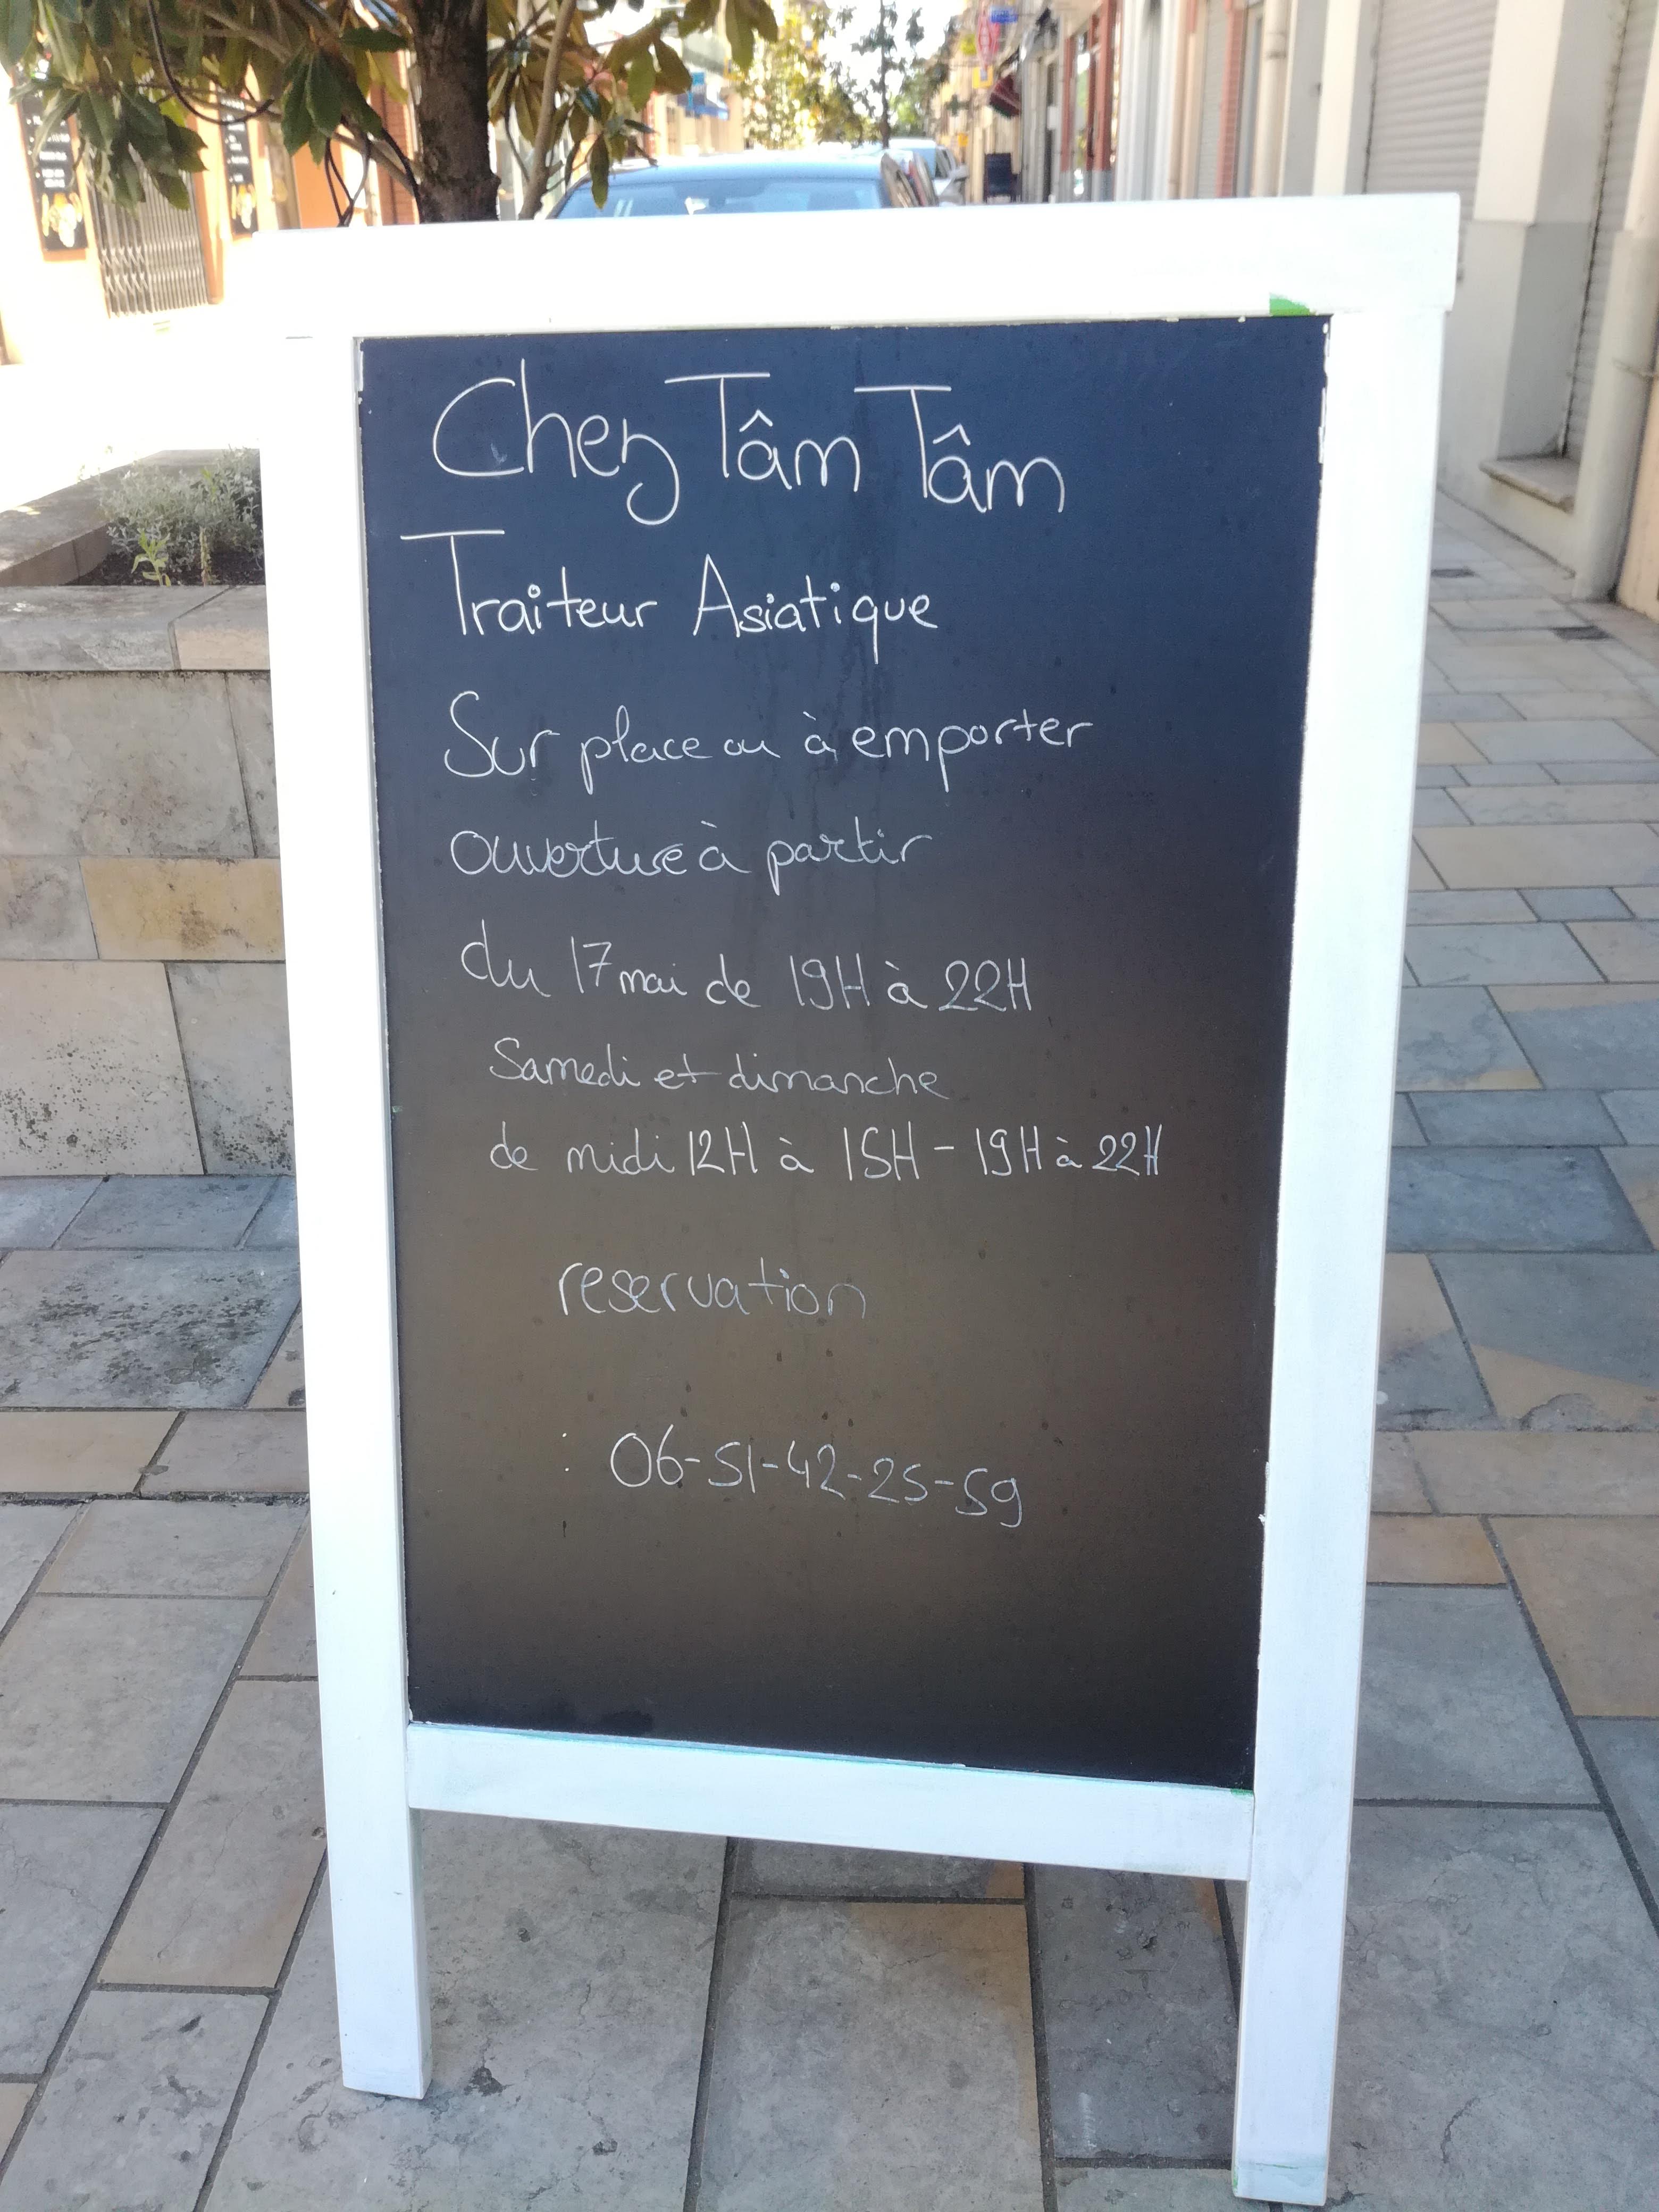 Chez Tâm Tâm
Traiteur Asiatique
Sur place ou à emporter
ouverture à partir
du 17 mai de 19H à 22H
Samedi et dimanche
de midi 12H à 15H - 19H à 22H
reservation
: 06-51-42-25-59